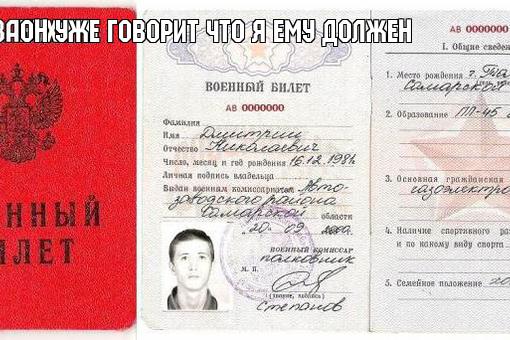 УЖЕ ГОВОРИТ ЧТО Я ЕМУ ДОЛЖЕН
ННЫЙ
ЛЕТ
ВОЕННЫЙ БИЛЕТ
АВ 0000000
Фамилия
Имя Дмитрий
Отчество Николаевич
Число, месяц и год рождения 16.12.198
Личная подпись владельца
Выдан военным комиссариатом Авто-
заводского района
Самарской области
20 09
ВОЕННЫЙ КОМИССАР
полковник
М. П.
(звание, подпись)
Степанов
АВ 0000000
I. Общие сведен
1. Место рождения г.
Самарской
2. Образование ПЛ-45
3. Основная гражданская
газоэлектро
4. Наличие спортивного раз
и по какому виду спорта
5. Семейное положение хо